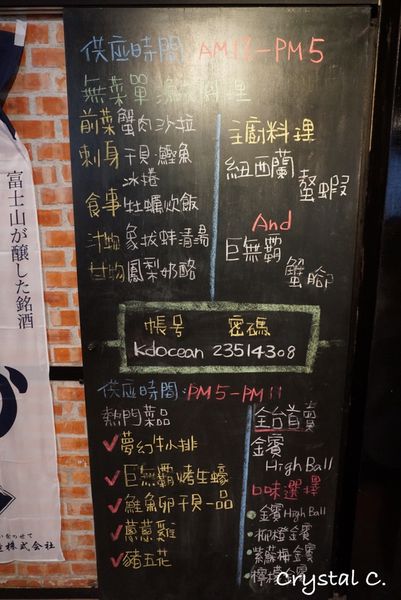 供应時間: AM12-PM5
無菜單海鮮料理
前菜 蟹肉沙拉
刺身 干貝.鰹魚
冰捲
食事 牡蠣炊飯
汁物 象拔蚌清湯
甘物 鳳梨奶酪
主廚料理
紐西蘭
螯蝦
And
巨無霸
蟹腳
帳号 密碼
kdocean 23514308
供应時間: PM5-PM11
熱門菜品
夢幻牛小排
巨無霸烤生蠔
鮭魚卵干貝一品
蔥蔥雞
豬五花
全台首賣
金賓
High Ball
口味選擇
金賓High Ball
柳橙金賓
紫蘇梅金賓
檸檬金賓
富士山が醸した銘酒
株式会社
Crystal C.